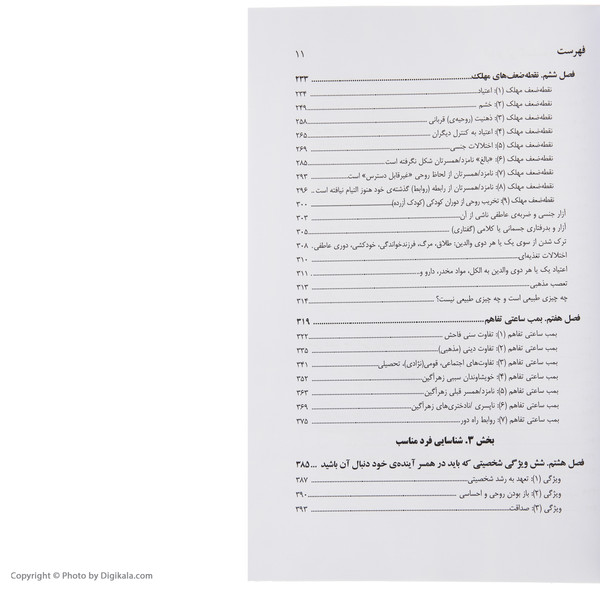 فهرست ۱۱
فصل ششم. نقطه‌ضعف‌های مهلک ۲۳۳
نقطه‌ضعف مهلک (۱): اعتیاد ۲۳۴
نقطه‌ضعف مهلک (۲): خشم ۲۴۹
نقطه‌ضعف مهلک (۳): ذهنیت (روحیه‌ی) قربانی ۲۵۸
نقطه‌ضعف مهلک (۴): اعتیاد به کنترل دیگران ۲۶۵
نقطه‌ضعف مهلک (۵): اختلالات جنسی ۲۶۹
نقطه‌ضعف مهلک (۶): «بالغ» نامزد/همسرتان شکل نگرفته است ۲۸۵
نقطه‌ضعف مهلک (۷): نامزد/همسرتان از لحاظ روحی «غیرقابل دسترس» است ۲۹۳
نقطه‌ضعف مهلک (۸): نامزد/همسرتان از رابطه (روابط) گذشته‌ی خود هنوز التیام نیافته است .. ۲۹۶
نقطه‌ضعف مهلک (۹): تخریب روحی از دوران کودکی (کودک آزرده) ۳۰۰
آزار جنسی و ضربه‌ی عاطفی ناشی از آن ۳۰۳
آزار و بدرفتاری جسمانی یا کلامی (گفتاری) ۳۰۵
ترک شدن از سوی یک یا هر دوی والدین: طلاق، مرگ، فرزندخواندگی، خودکشی، دوری عاطفی. ۳۰۸
اختلالات تغذیه‌ای ۳۱۰
اعتیاد یک یا هر دوی والدین به الکل، مواد مخدر، دارو و ۳۱۱
تعصب مذهبی ۳۱۳
چه چیزی طبیعی است و چه چیزی طبیعی نیست؟ ۳۱۴
فصل هفتم. بمب ساعتی تفاهم ۳۱۹
بمب ساعتی تفاهم (۱): تفاوت سنی فاحش ۳۲۲
بمب ساعتی تفاهم (۲): تفاوت دینی (مذهبی) ۳۳۵
بمب ساعتی تفاهم (۳): تفاوت‌های اجتماعی، قومی(نژادی)، تحصیلی ۳۴۱
بمب ساعتی تفاهم (۴): خویشاوندان سببی زهرآگین ۳۵۲
بمب ساعتی تفاهم (۵): نامزد/همسر قبلی زهرآگین ۳۶۳
بمب ساعتی تفاهم (۶): ناپسری /نادختری‌های زهرآگین ۳۶۹
بمب ساعتی تفاهم (۷): روابط راه دور ۳۷۵
بخش ۳. شناسایی فرد مناسب
فصل هشتم. شش ویژگی شخصیتی که باید در همسر آینده‌ی خود دنبال آن باشید ... ۳۸۵
ویژگی (۱): تعهد به رشد شخصیتی ۳۸۷
ویژگی (۲): باز بودن روحی و احساسی ۳۹۰
ویژگی (۳): صداقت ۳۹۳
Copyright © Photo by Digikala.com